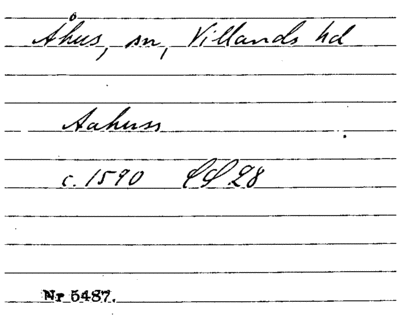 Åhus, sn, Villands hd
Aahuss
c. 1590 LL 28
Nr 5487.